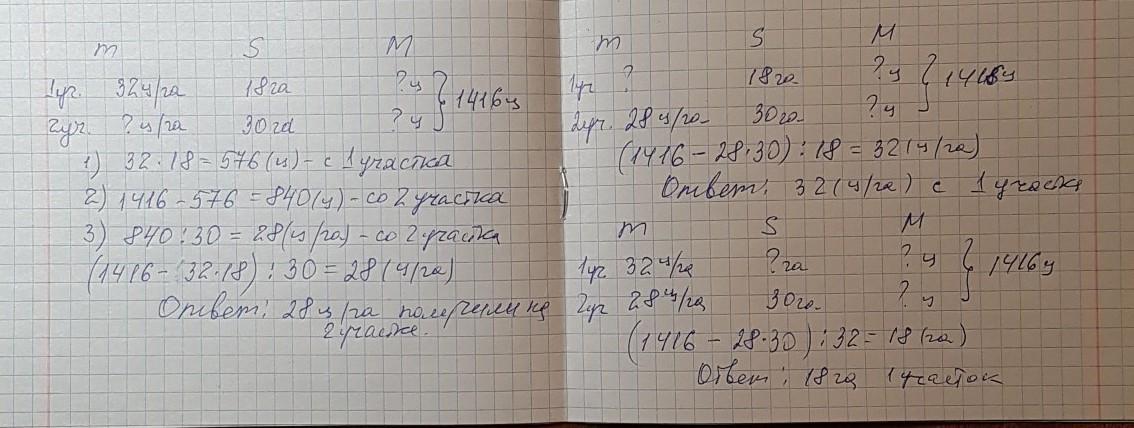 m S M
1уч. 32ц/га 18га ?ц } 1416ц
2уч. ?ц/га 30га ?ц
1) 32·18=576(ц)- с 1 участка
2) 1416-576=840(ц)-со 2 участка
3) 840:30=28(ц/га)-со 2 участка
(1416-(32·18):30=28(ц/га)
Ответ: 28ц/га получили на
2 участке.
m S M
1уч ? 18га ?ц } 1416ц
2уч. 28ц/га 30га ?ц
(1416-28·30):18=32(ц/га)
Ответ: 32(ц/га) с 1 участка
m S M
1уч 32ц/га ?га ?ц } 1416ц
2уч 28ц/га 30га ?ц
(1416-28·30):32=18(га)
Ответ: 18га 1 участок